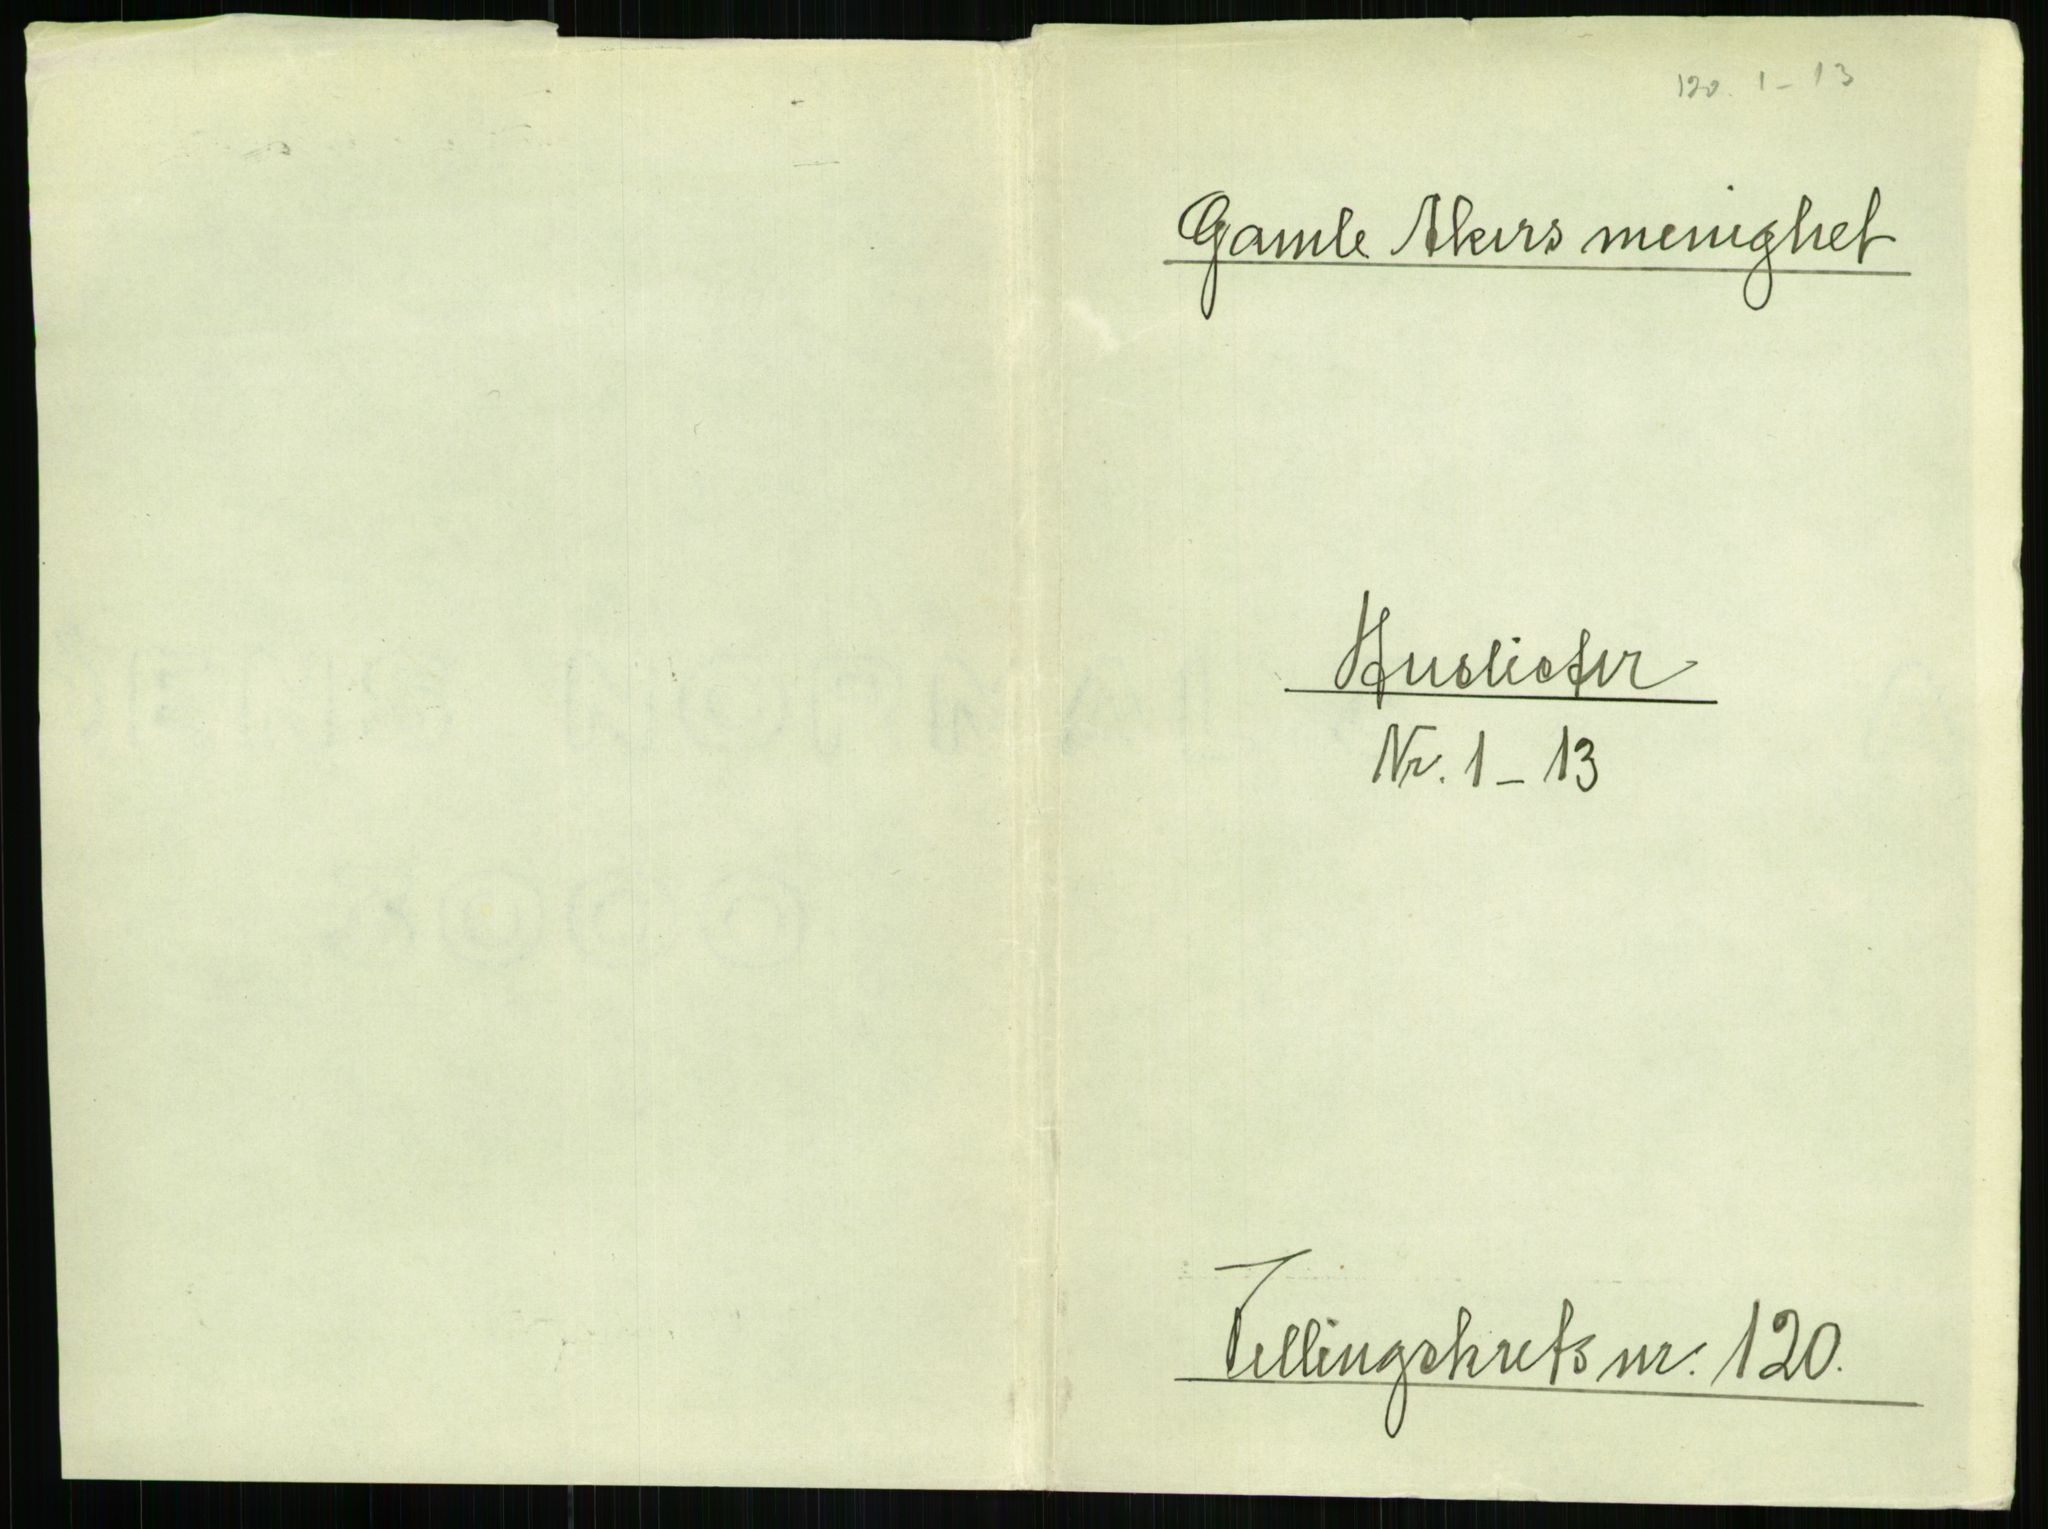 120. 1 - 13
Gamle Akers menighet
Huslister
Nr. 1 - 13
Tellingskrets nr. 120.